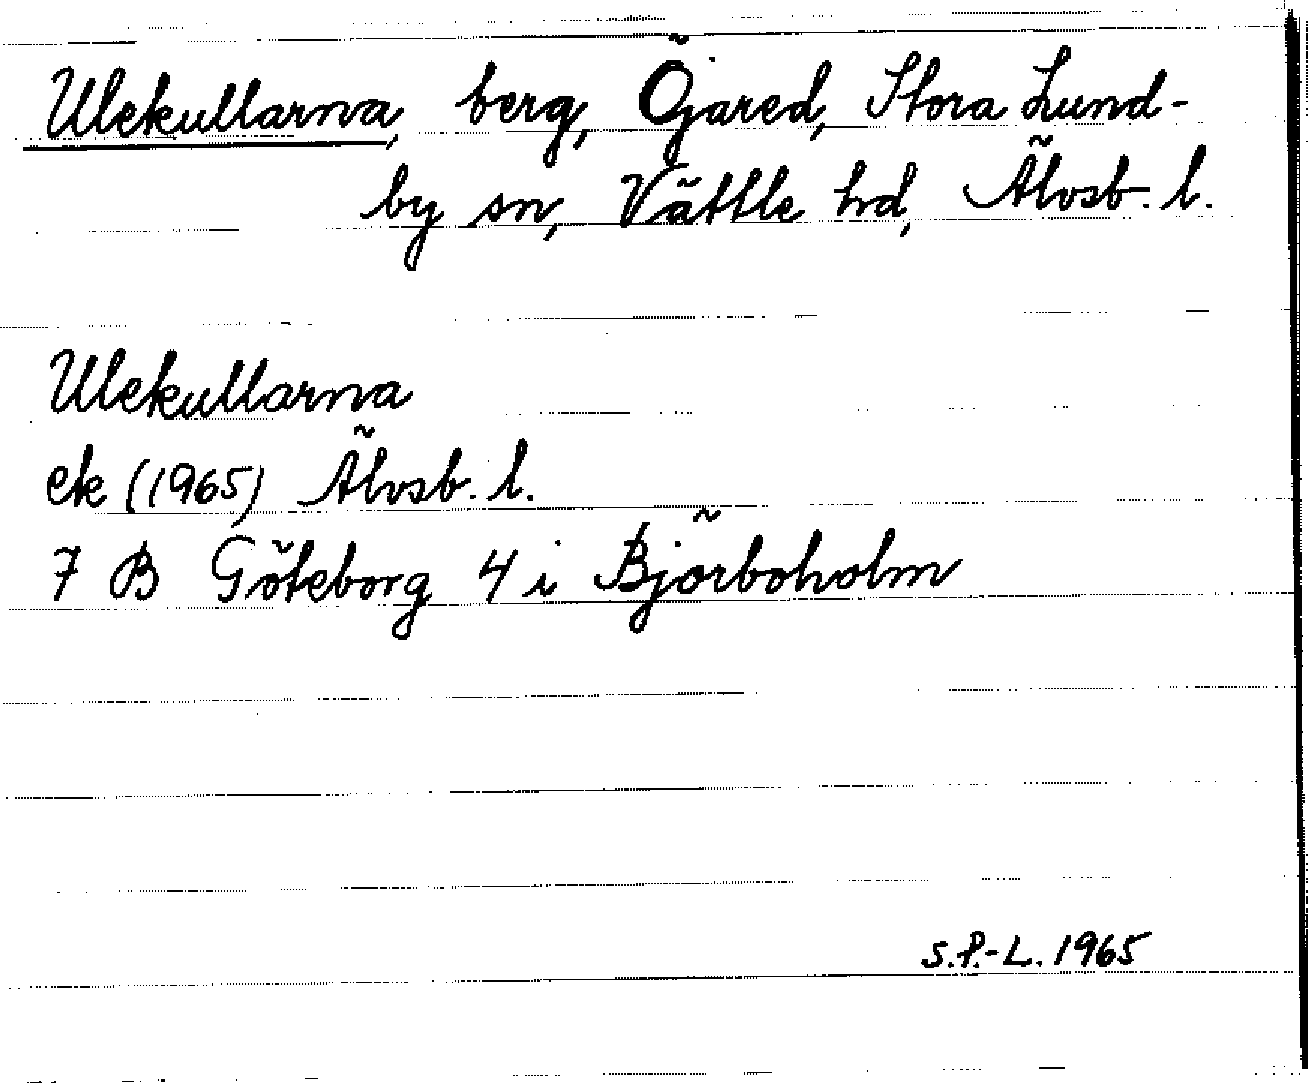 Ulekullarna, berg, Öjared, Stora Lund-
by sn, Vättle hd, Älvsb. l.
Ulekullarna
ek (1965) Älvsb. l.
7 B Göteborg 4 i Björboholm
S.P.-L. 1965